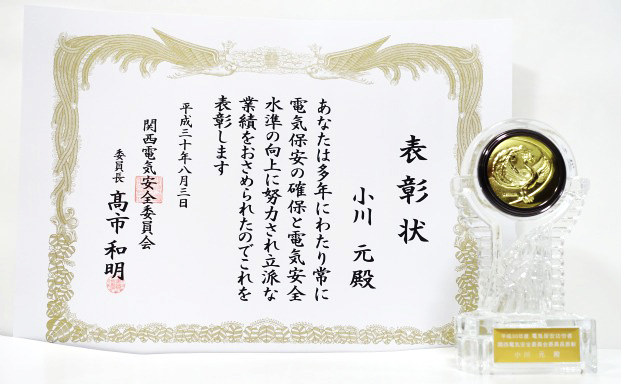 表彰状
小川 元 殿
あなたは多年にわたり常に
電気保安の確保と電気安全
水準の向上に努力され立派な
業績をおさめられたのでこれを
表彰します
平成三十年八月三日
関西電気安全委員会
委員長 髙市 和明
小川 元 殿